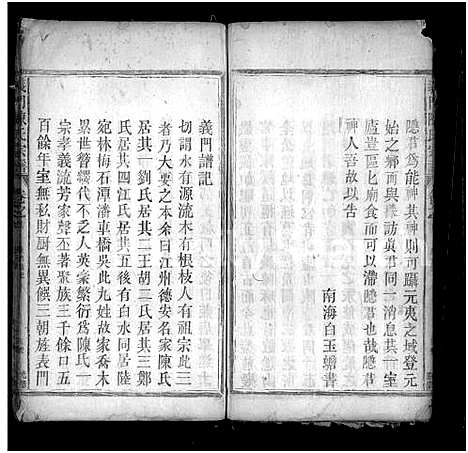 隱君爲能神其神則可躡元夷之域登元
始之鄉而與
眞君同一消息其一室
廬豈區匕廟食而可以滯隱君也哉隱君
神人吾故以告
南海白玉蟾書
義門譜記
切謂水有源流木有根枝人有祖宗此三
者乃大要之本余曰江州德安名家陳氏
居其一劉氏居其二王胡二氏居其三鄭
氏居其四江氏居其五後有白水同居陸
宛林梅石潭潘車橋吳此九姓故家喬木
累世簪纓代不乏人英豪繁衍爲陳氏一
宗孝義流芳家聲丕著聚族三千餘口五
百餘年室無私財厨無異饌三朝旌表門